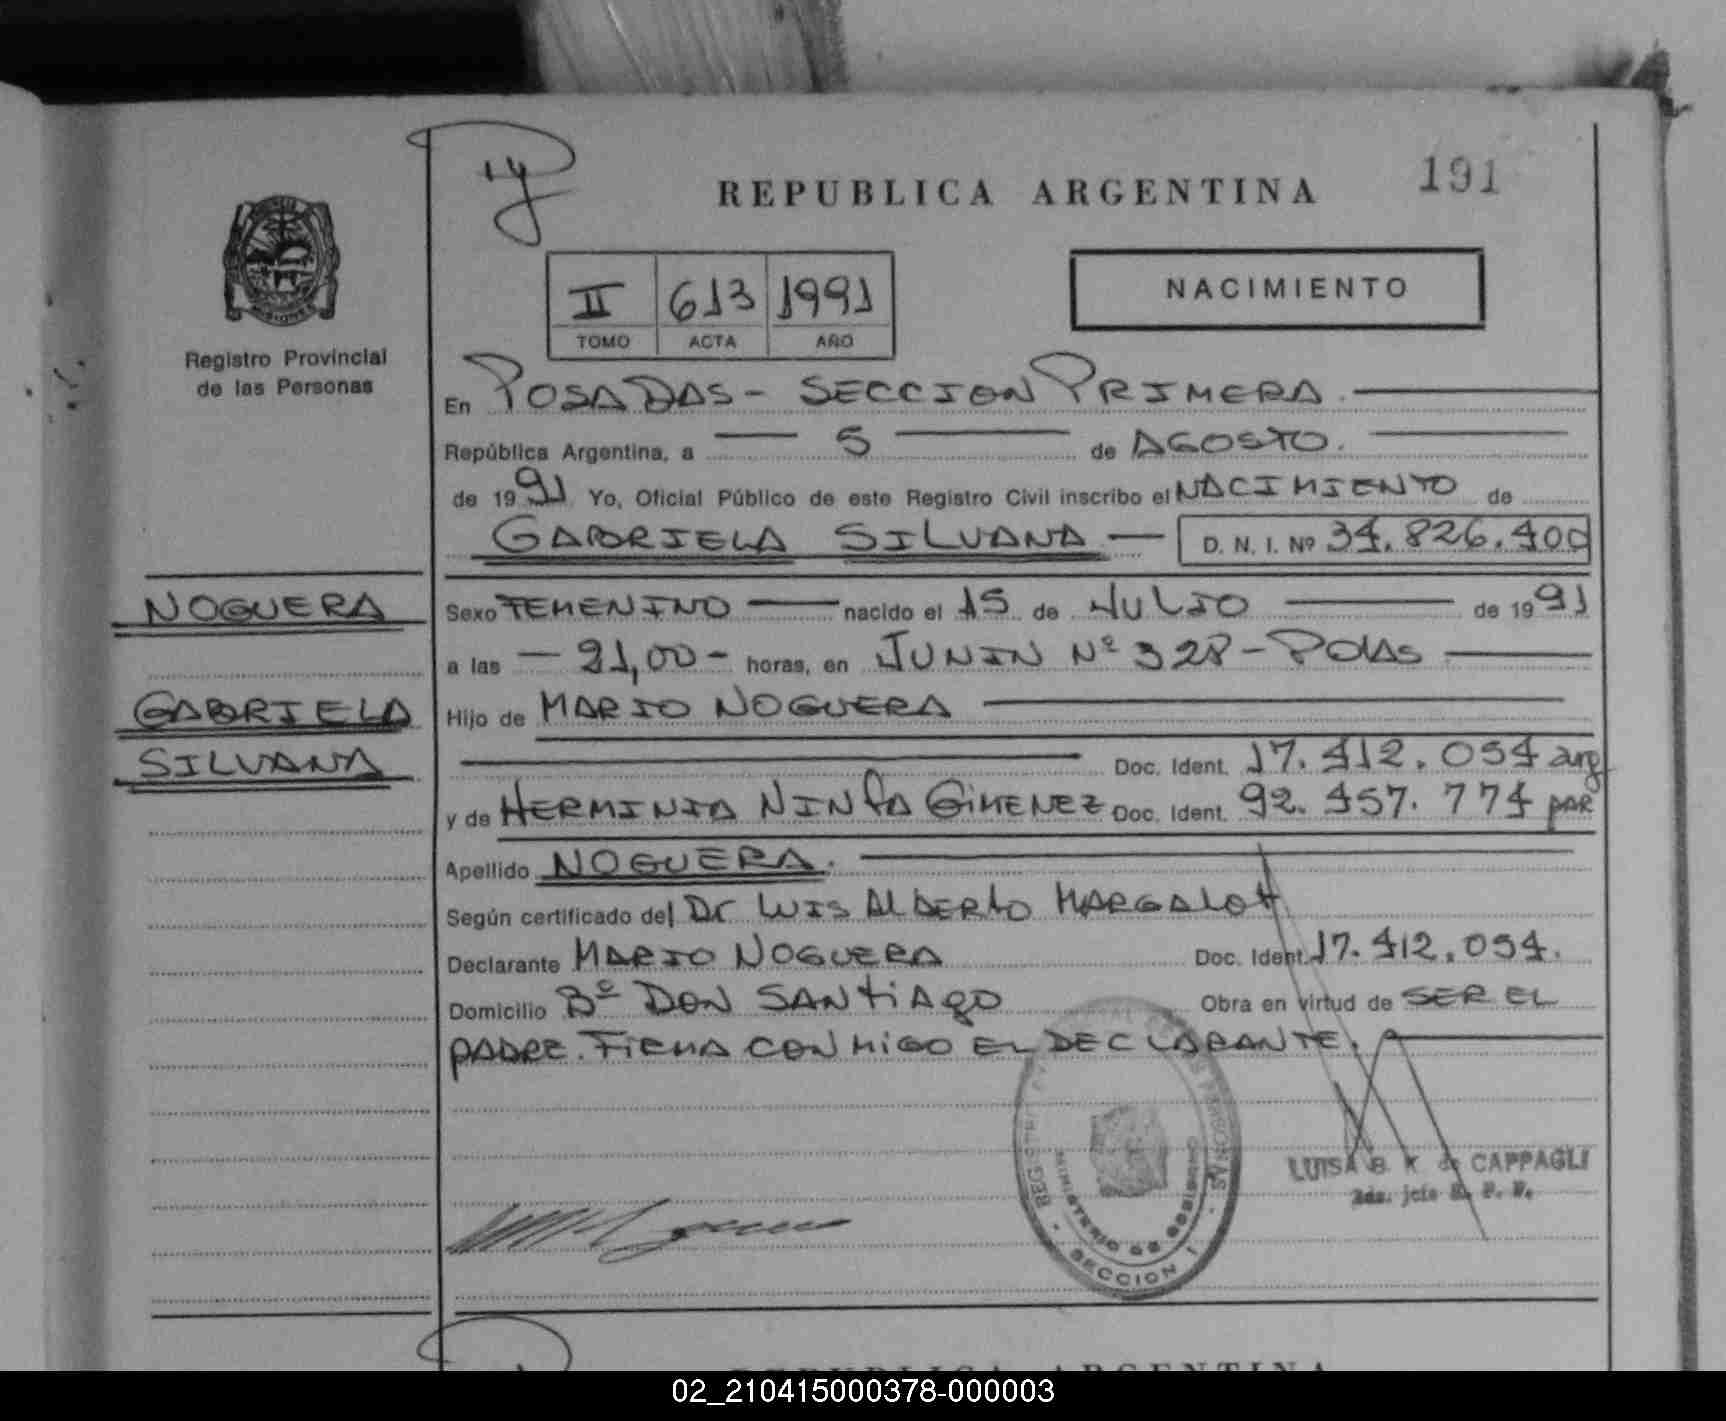 REPUBLICA ARGENTINA
191
II 613 1991
TOMO ACTA AÑO
NACIMIENTO
MISIONES
Registro Provincial
de las Personas
En POSADAS - SECCION PRIMERA.
República Argentina, a 5 de AGOSTO.
de 1991 Yo, Oficial Público de este Registro Civil inscribo el NACIMIENTO de
GABRIELA SILVANA — D. N. I. Nº 34.826.400
NOGUERA
GABRIELA
SILVANA
Sexo FEMENINO — nacido el 15 de JULIO — de 1991
a las — 21,00 — horas, en JUNIN Nº 328 - Pdas
Hijo de MARIO NOGUERA
Doc. Ident. 17.412.054 arg
y de HERMINIA NINFA GIMENEZ Doc. Ident. 92.457.774 par
Apellido NOGUERA.
Según certificado del Dr LUIS ALBERTO MARGALOT
Declarante MARIO NOGUERA Doc. Ident. 17.412.054.
Domicilio Bº DON SANTIAGO Obra en virtud de SER EL
PADRE. FIRMA CONMIGO EL DECLARANTE.
MINISTERIO DE GOBIERNO
SECCION 1
LUISA B. K. de CAPPAGLI
REPUBLICA ARGENTINA
02_210415000378-000003